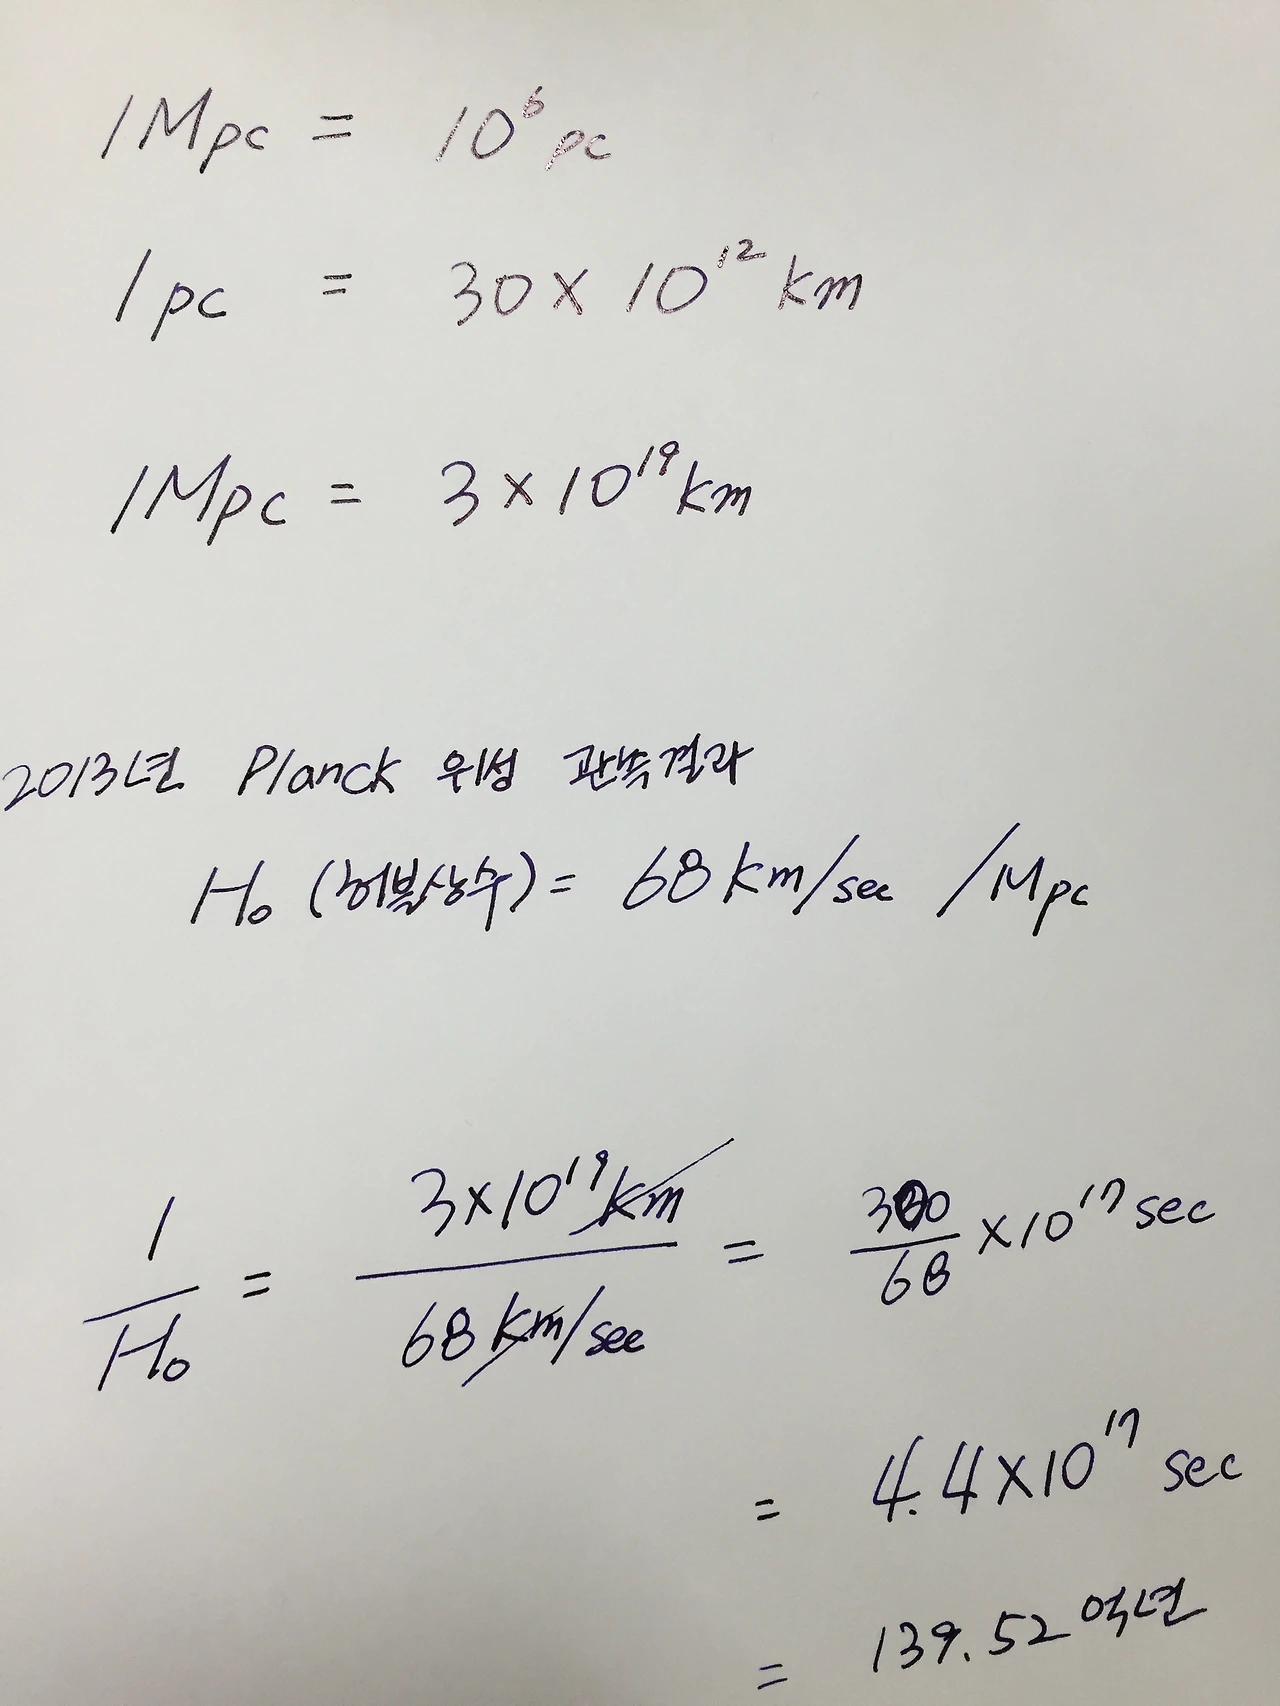 1Mpc = 10⁶ pc
1pc = 30 × 10¹² km
1Mpc = 3 × 10¹⁹ km
2013년 Planck 위성 관측결과
H₀ (허블상수) = 68 km/sec /Mpc
1/H₀ = 3×10¹⁹ km / 68 km/sec = 300/68 × 10¹⁷ sec
= 4.4 × 10¹⁷ sec
= 139.52 억년